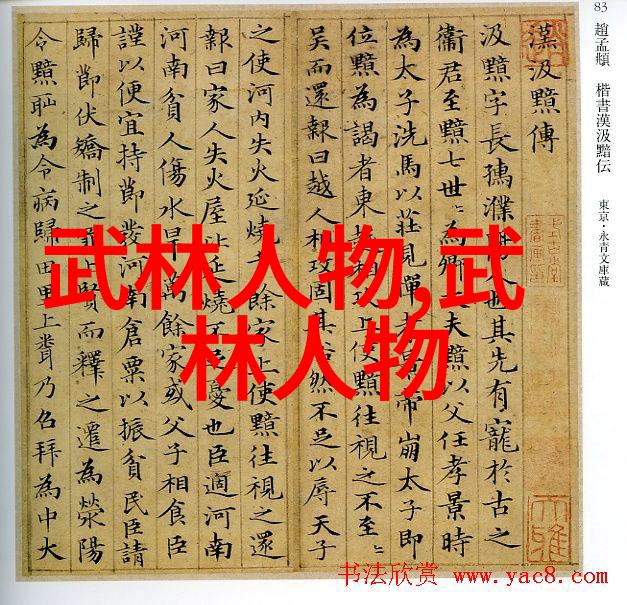 83 趙孟頫 楷書漢汲黯伝 東京・永青文庫蔵
漢汲黯傳
汲黯字長孺濮人也其先有寵於古之
衛君至黯七世〻為卿夫黯以父任孝景時
為太子洗馬以莊見憚孝帝崩太子即
位黯為謁者東越相攻上使黯往視之不至〻
吳而還報曰越人相攻固其俗然不足以辱天子
之使河內失火延燒千餘家上使黯往視之還
報曰家人失火屋比延燒不足憂也臣適河南
河南貧人傷水旱萬餘家或父子相食臣
謹以便宜持節發河南倉粟以振貧民臣請
歸節伏矯制之罪上賢而釋之遷為滎陽
令黯恥為令病歸田里上聞乃召拜為中大
武林人物,武
林人物
书法欣赏 www.yac8.com